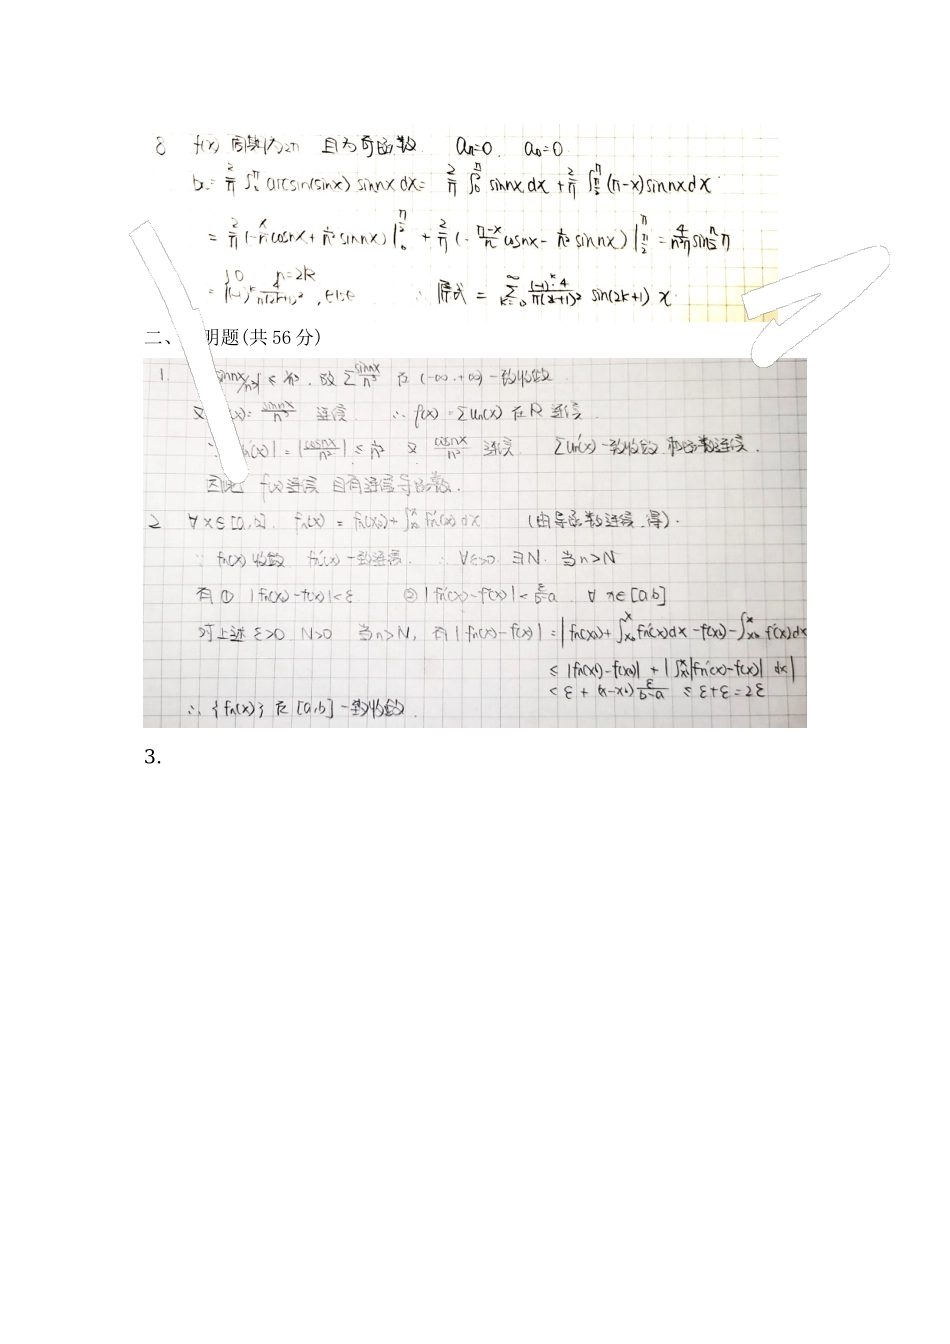 8 f(x) 周期为2π 且为奇函数 aₙ=0. a₀=0
bₙ= 2/π ∫₀^π arcsin(sinx) sinnx dx= 2/π ∫₀^(π/2) x sinnx dx + 2/π ∫ (π-x)sinnxdx
= 2/π (-x/n cosnx+ 1/n² sinnx)|₀^(π/2) + 2/π (- (π-x)/n cosnx- 1/n² sinnx)| = 4/(n²π) sin n/2 π
= { 0 n=2k
(-1)^k , else ∴ 原式 = Σ (-1)^k·4/(π(2k+1)²) sin(2k+1)x
二、 明题(共 56 分)
1. sinnx/n³| ≤ 1/n³. 故 Σ sinnx/n³ 在 (-∞.+∞) 一致收敛
又 (x)= sinnx/n³ 连续 ∴ f(x) = Σuₙ(x) 在 R 连续
'(x)| = |cosnx/n²| ≤ 1/n² 又 cosnx/n² 连续 Σuₙ'(x) 一致收敛 和函数连续.
因此 f(x)连续 且有连续导函数.
2 ∀x∈[a,b]. fₙ(x) = fₙ(x₀)+∫ₓ₀^x fₙ'(x)dx (由导函数连续 得).
∵ fₙ(x) 收敛 fₙ'(x) 一致连续. ∴ ∀ε>0 ∃N. 当n>N
有 ① |fₙ(x₀)-f(x₀)|<ε ② |fₙ'(x)-f'(x)|< ε/(b-a) ∀ x∈[a,b]
对上述 ε>0 N>0 当n>N, 有 |fₙ(x)-f(x)| = |fₙ(x₀)+∫ₓ₀^x fₙ'(x)dx -f(x₀)-∫ₓ₀^x f'(x)dx
≤ |fₙ(x₀)-f(x₀)| + |∫ₓ₀^x|fₙ'(x)-f'(x)| dx|
< ε + (x-x₀) ε/(b-a) ≤ ε+ε=2ε
∴ {fₙ(x)} 在 [a,b] 一致收敛
3.